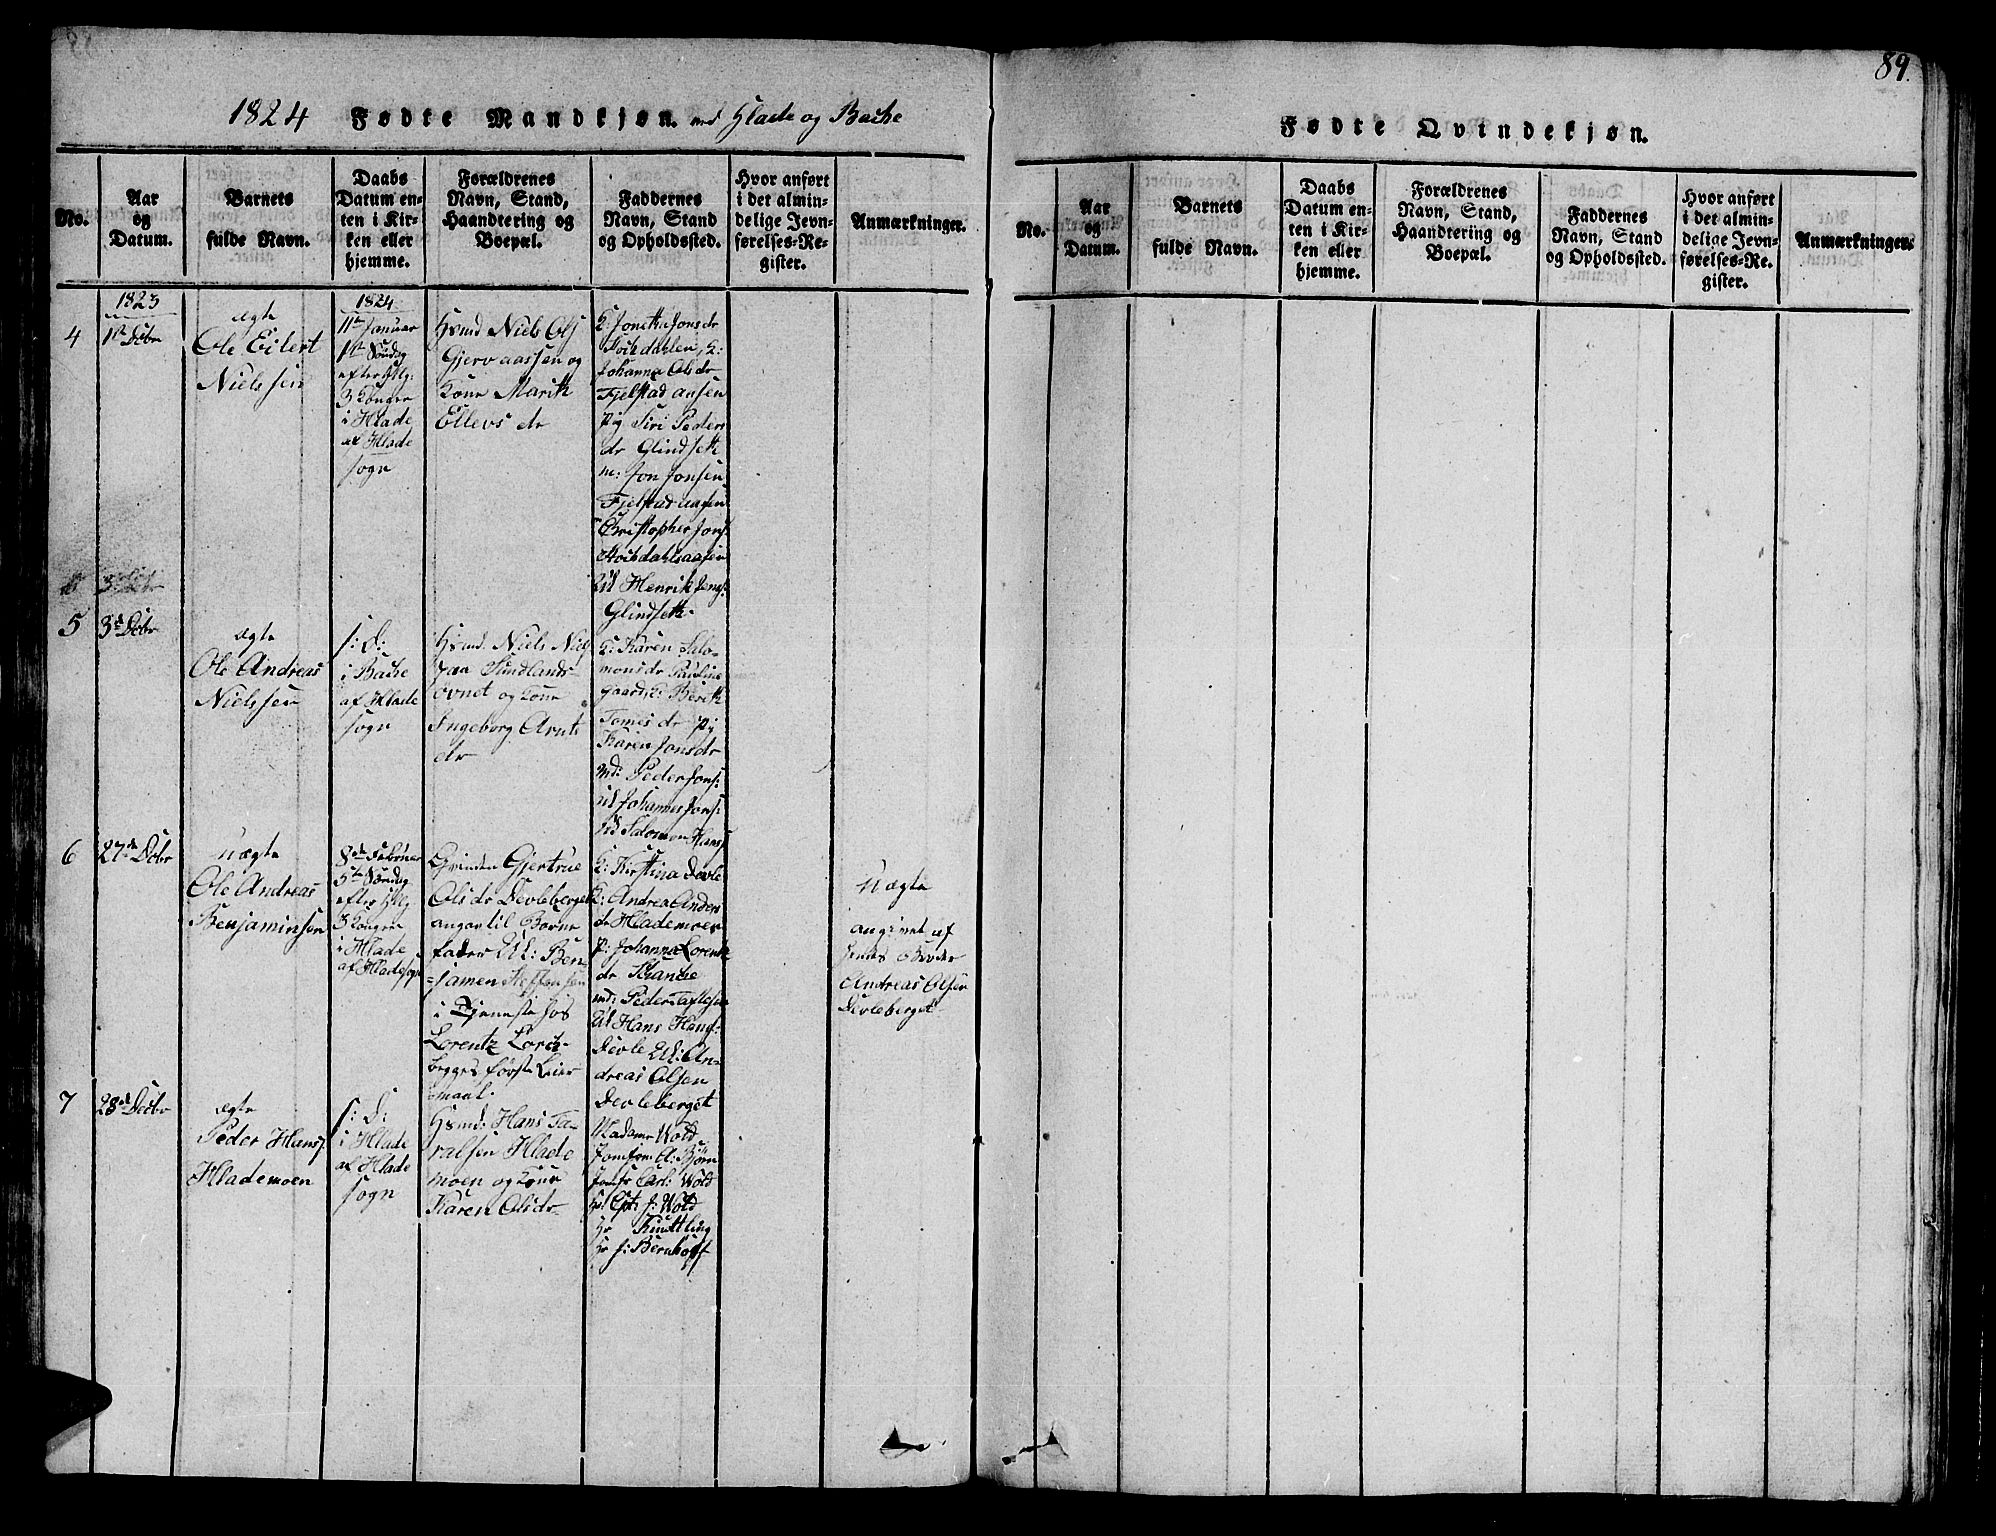 89.
1824 Fødte Mandkjøn. ved Hlade og Bache
No.
Aar
og
Datum.
Barnets
fulde Navn.
Daabs
Datum en-
ten i Kir-
ken eller
hjemme.
Forældrenes
Navn, Stand,
Haandtering og
Boepæl.
Faddernes
Navn, Stand
og Opholdssted.
Hvor anført
i det almin-
delige Jevn-
førelses-Re-
gister.
Anmærkninger.
4
1823
1st Dcbr
ægte
Ole Eilert
Nielssen
1824
11te Januar
1st Søndag
efter Hlg:
3 Konger
i Hlade
af Hlade
sogn
Hsmd Niels Ols
Gjervaassen og
Kone Marith
Ellevs dr
K: Jonetta Jonsdr
Stokdahlen, K:
Johanna Olsdr
Fjelstadaasen
Pig Siri Peders
dr Glindseth
m: Jon Jonsen
Fjelstadaasen
Christopher Jons:
Stokdahlsaasen
Ul Henrik Jens:
Glindseth
5
3de Dcbr
ægte
Ole Andreas
Nielssen
s: D:
i Bache
af Hlade
sogn
Hsmd. Niels Niels
paa Sundlands-
ovnet og Kone
Ingeborg Arnts
dr
K: Karen Salo-
monsdr Pauline
gaard K: Berith
Tomesdr Pig
Karen Jonsdr
md: Peder Jons:
Ul Johannes Jons:
Ul Salomon Hans:
6
27de Dcbr
uægte
Ole Andreas
Benjaminsen
8de Februar
5te Søndag
efter Hlg
3 Konger
i Hlade
af Hladesogn
Qvinden Gjertrue
Olsdr Devleberget
angav til Barne
fader UK: Ben-
=jamen Steffensen
i Tjeneste hos
Lorentz Lorch-
begges første Leier
maal.
K: Kirstina Devle
K: Andrea Anders
dr Hlademoen
P: Johanna Lorentz
dr Schanche
md: Peder Taxlesen
Ul Hans Hans:
Devle UK: An-
dreas Olsen
Devleberget
Uægte
angivet af
hendes Broder
Andreas Olsen
Devleberget
7
28de Decbr
ægte
Peder Hans:
Hlademoen
s: D:
i Hlade
af Hlade
sogn
Hsmd: Hans Ta-
ralsen Hlade
moen og Kone
Karen Olsdr
Madame Wold
Jomfru A: Bjørn
Jomfr Carl: Wold
Hr Cpt: J: Wold
Hr Knudtling
Hr J: Bernhoft
Fødte Qvindekjøn.
No.
Aar
og
Datum.
Barnets
fulde Navn.
Daabs
Datum en-
ten i Kir-
ken eller
hjemme.
Forældrenes
Navn, Stand,
Haandtering og
Boepæl.
Faddernes
Navn, Stand
og Opholdssted.
Hvor anført
i det almin-
delige Jevn-
førelses-Re-
gister.
Anmærkninger.